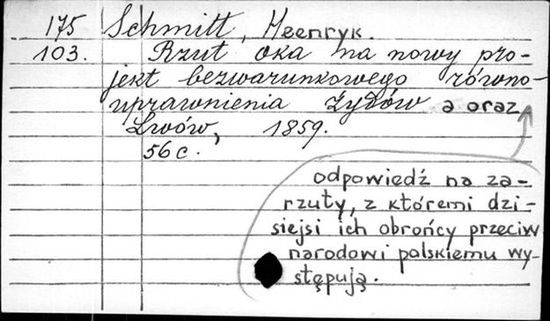 175 Schmitt, Heenryk.
103. Rzut oka na nowy pro-
jekt bezwarunkowego równo-
uprawnienia Żydów a oraz
Lwów, 1859.
56 c.
odpowiedź na za-
rzuty, z któremi dzi-
siejsi ich obrońcy przeciw
narodowi polskiemu wy-
stępują.